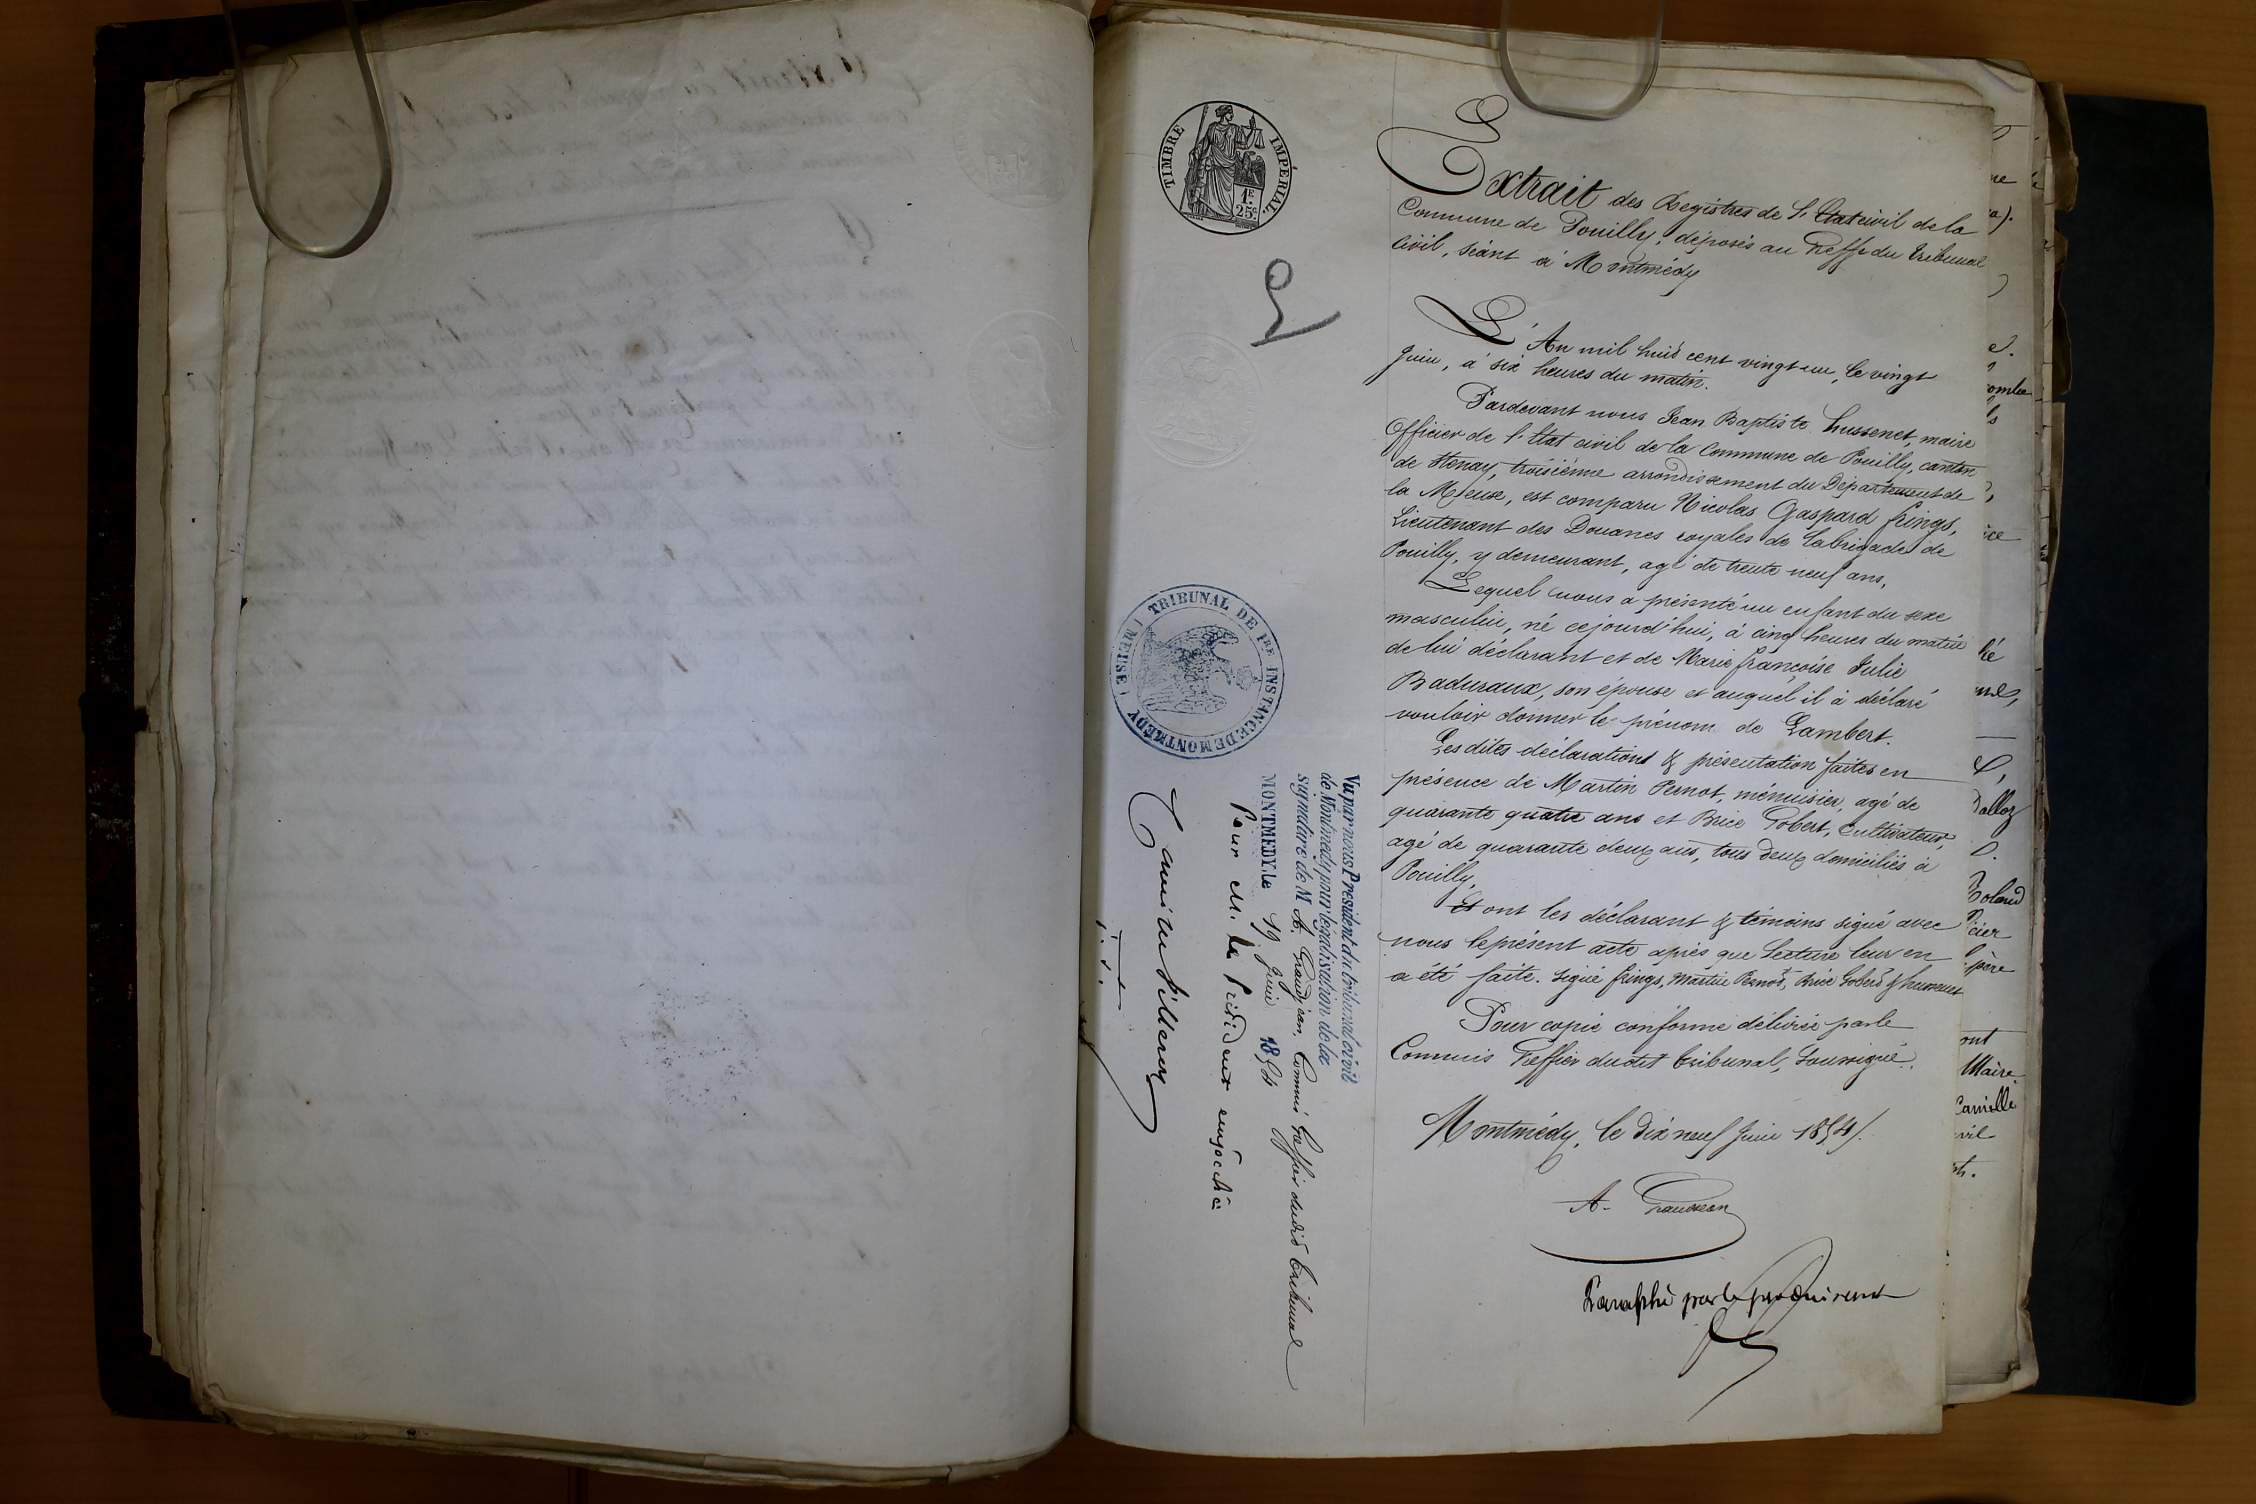 TIMBRE IMPÉRIAL.
1F.
25c
Extrait des Registres de l'Etat civil de la
Commune de Pouilly, déposés au Greffe du Tribunal
Civil, séant à Montmédy
L'An mil huit cent vingt un, le vingt
Juin, à six heures du matin.
Pardevant nous Jean Baptiste hussenet, maire
Officier de l'Etat civil de la Commune de Pouilly, canton
de Stenay, troisième arrondissement du Département de
la Meuse, est comparu Nicolas Gaspard frings,
Lieutenant des Douanes royales de la brigade de
Pouilly, y demeurant, agé de trente neuf ans,
Lequel nous a présenté un enfant du sexe
masculin, né cejourd'hui, à cinq heures du matin
de lui déclarant et de Marie françoise Julie
Baduraux, son épouse et auquel il à déclaré
vouloir donner le prénom de Lambert.
Les dites déclarations & présentation faites en
présence de Martin Pernot, ménuisier, agé de
quarante quatre ans et Brice Gobert, Cultivateur,
agé de quarante deux ans, tous deux domiciliés à
Pouilly,
Et ont les déclarant & témoins signé avec
nous le présent acte après que Lecture leur en
a été faite. Signé frings, Martin Pernot, Brice Gobert & hussenet
Pour copie conforme délivrée par le
Commis Greffier dudit tribunal, Soussigné.
Montmédy, le dix neuf Juin 1854.
A. Grandjean
Paraphé par le requérant
TRIBUNAL DE 1RE INSTANCE DE MONTMÉDY (MEUSE)
Vu par nous Président du tribunal civil
de Montmédy pour légalisation de la
signature de M A. Grandjean, Commis Greffier dudit Tribunal
MONTMEDY, le 19 Juin 1854
Pour M. le Président empêché